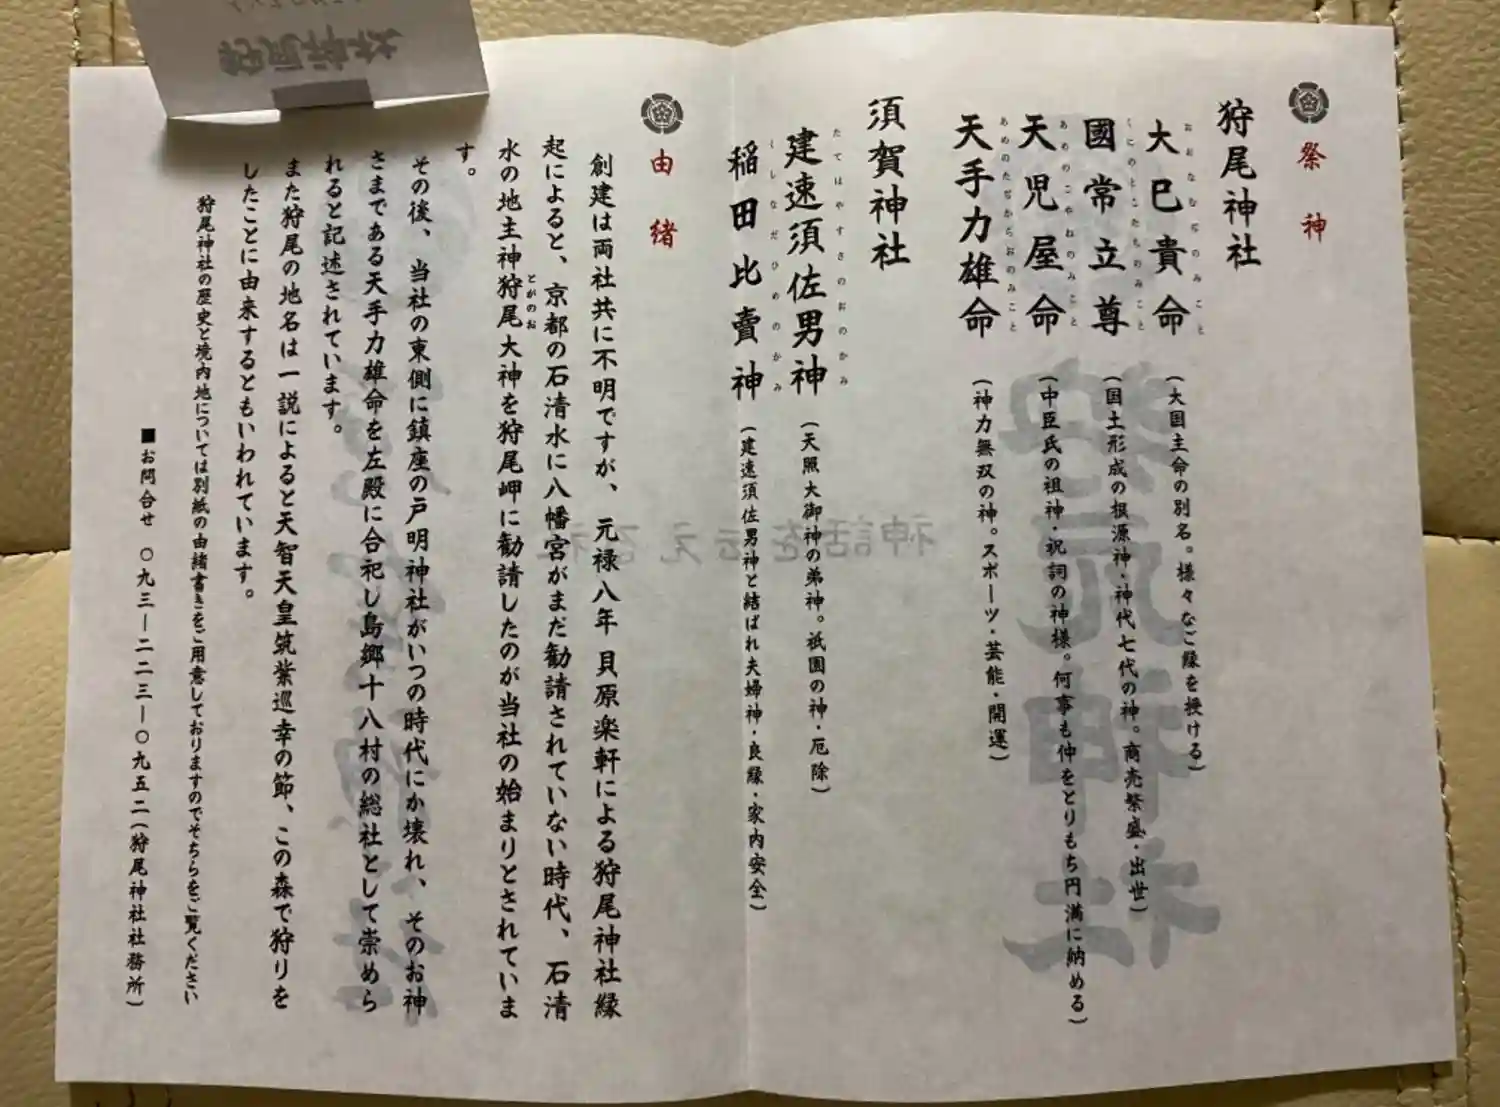 祭神
狩尾神社
大巳貴命
おおなむぢのみこと
(大国主命の別名。様々なご縁を授ける)
國常立尊
くにのとこたちのみこと
(国土形成の根源神・神代七代の神。商売繁盛・出世)
天児屋命
あめのこやねのみこと
(中臣氏の祖神・祝詞の神様。何事も仲をとりもち円満に納める)
天手力雄命
あめのたぢからおのみこと
(神力無双の神。スポーツ・芸能・開運)
須賀神社
建速須佐男神
たてはやすさのおのかみ
(天照大御神の弟神。祇園の神・厄除)
稲田比賣神
くしなだひめのかみ
(建速須佐男神と結ばれ夫婦神・良縁・家内安全)
由緒
創建は両社共に不明ですが、元禄八年 貝原楽軒による狩尾神社縁
起によると、京都の石清水に八幡宮がまだ勧請されていない時代、石清
水の地主神狩尾大神を狩尾岬に勧請したのが当社の始まりとされていま
とがのお
す。
その後、当社の東側に鎮座の戸明神社がいつの時代にか壊れ、そのお神
さまである天手力雄命を左殿に合祀し島郷十八村の総社として崇めら
れると記述されています。
また狩尾の地名は一説によると天智天皇筑紫巡幸の節、この森で狩りを
したことに由来するともいわれています。
狩尾神社の歴史と境内地については別紙の由緒書きをご用意しておりますのでそちらをご覧ください
■お問合せ 〇九三―二二三―〇九五二(狩尾神社社務所)
神話を伝える社
狩尾神社